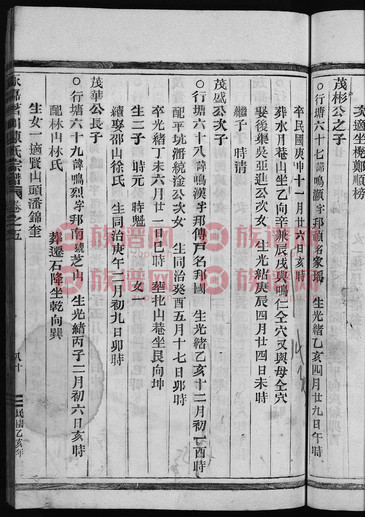 次適坐欖鄭順榜
茂彬公之子
○行塘六十七諱鳴 字邦 名家瑪 生光緒乙亥四月廿九日午時
卒民國庚申十一月廿六日亥時
葬水月菴山坐乙向辛兼辰戌與鳴仁仝穴又與母仝穴
娶後垟吳亞 公女 生光緒庚辰四月廿四日未時
繼子 時清
茂盛公次子
○行塘六十八諱鳴漢字邦傅戸名邦國 生光緒乙亥十二月初一酉時
配平坑潘統淦公次女 生同治癸酉五月十七日卯時
卒光緒丁未六月廿一日巳時 葬北山菴坐艮向坤
生二子 時元 時魁 女一
續娶邵山徐氏 生同治庚午二月初九日卯時
茂華公長子
○行塘六十九諱鳴烈字邦南號芝山 生光緒丙子二月初六日亥時
配林山林氏 葬 石隆坐乾向巽
生女一適賢山頭潘錦奎
永嘉茗川 氏宗譜 卷之五
八十
民國乙亥年
族譜网